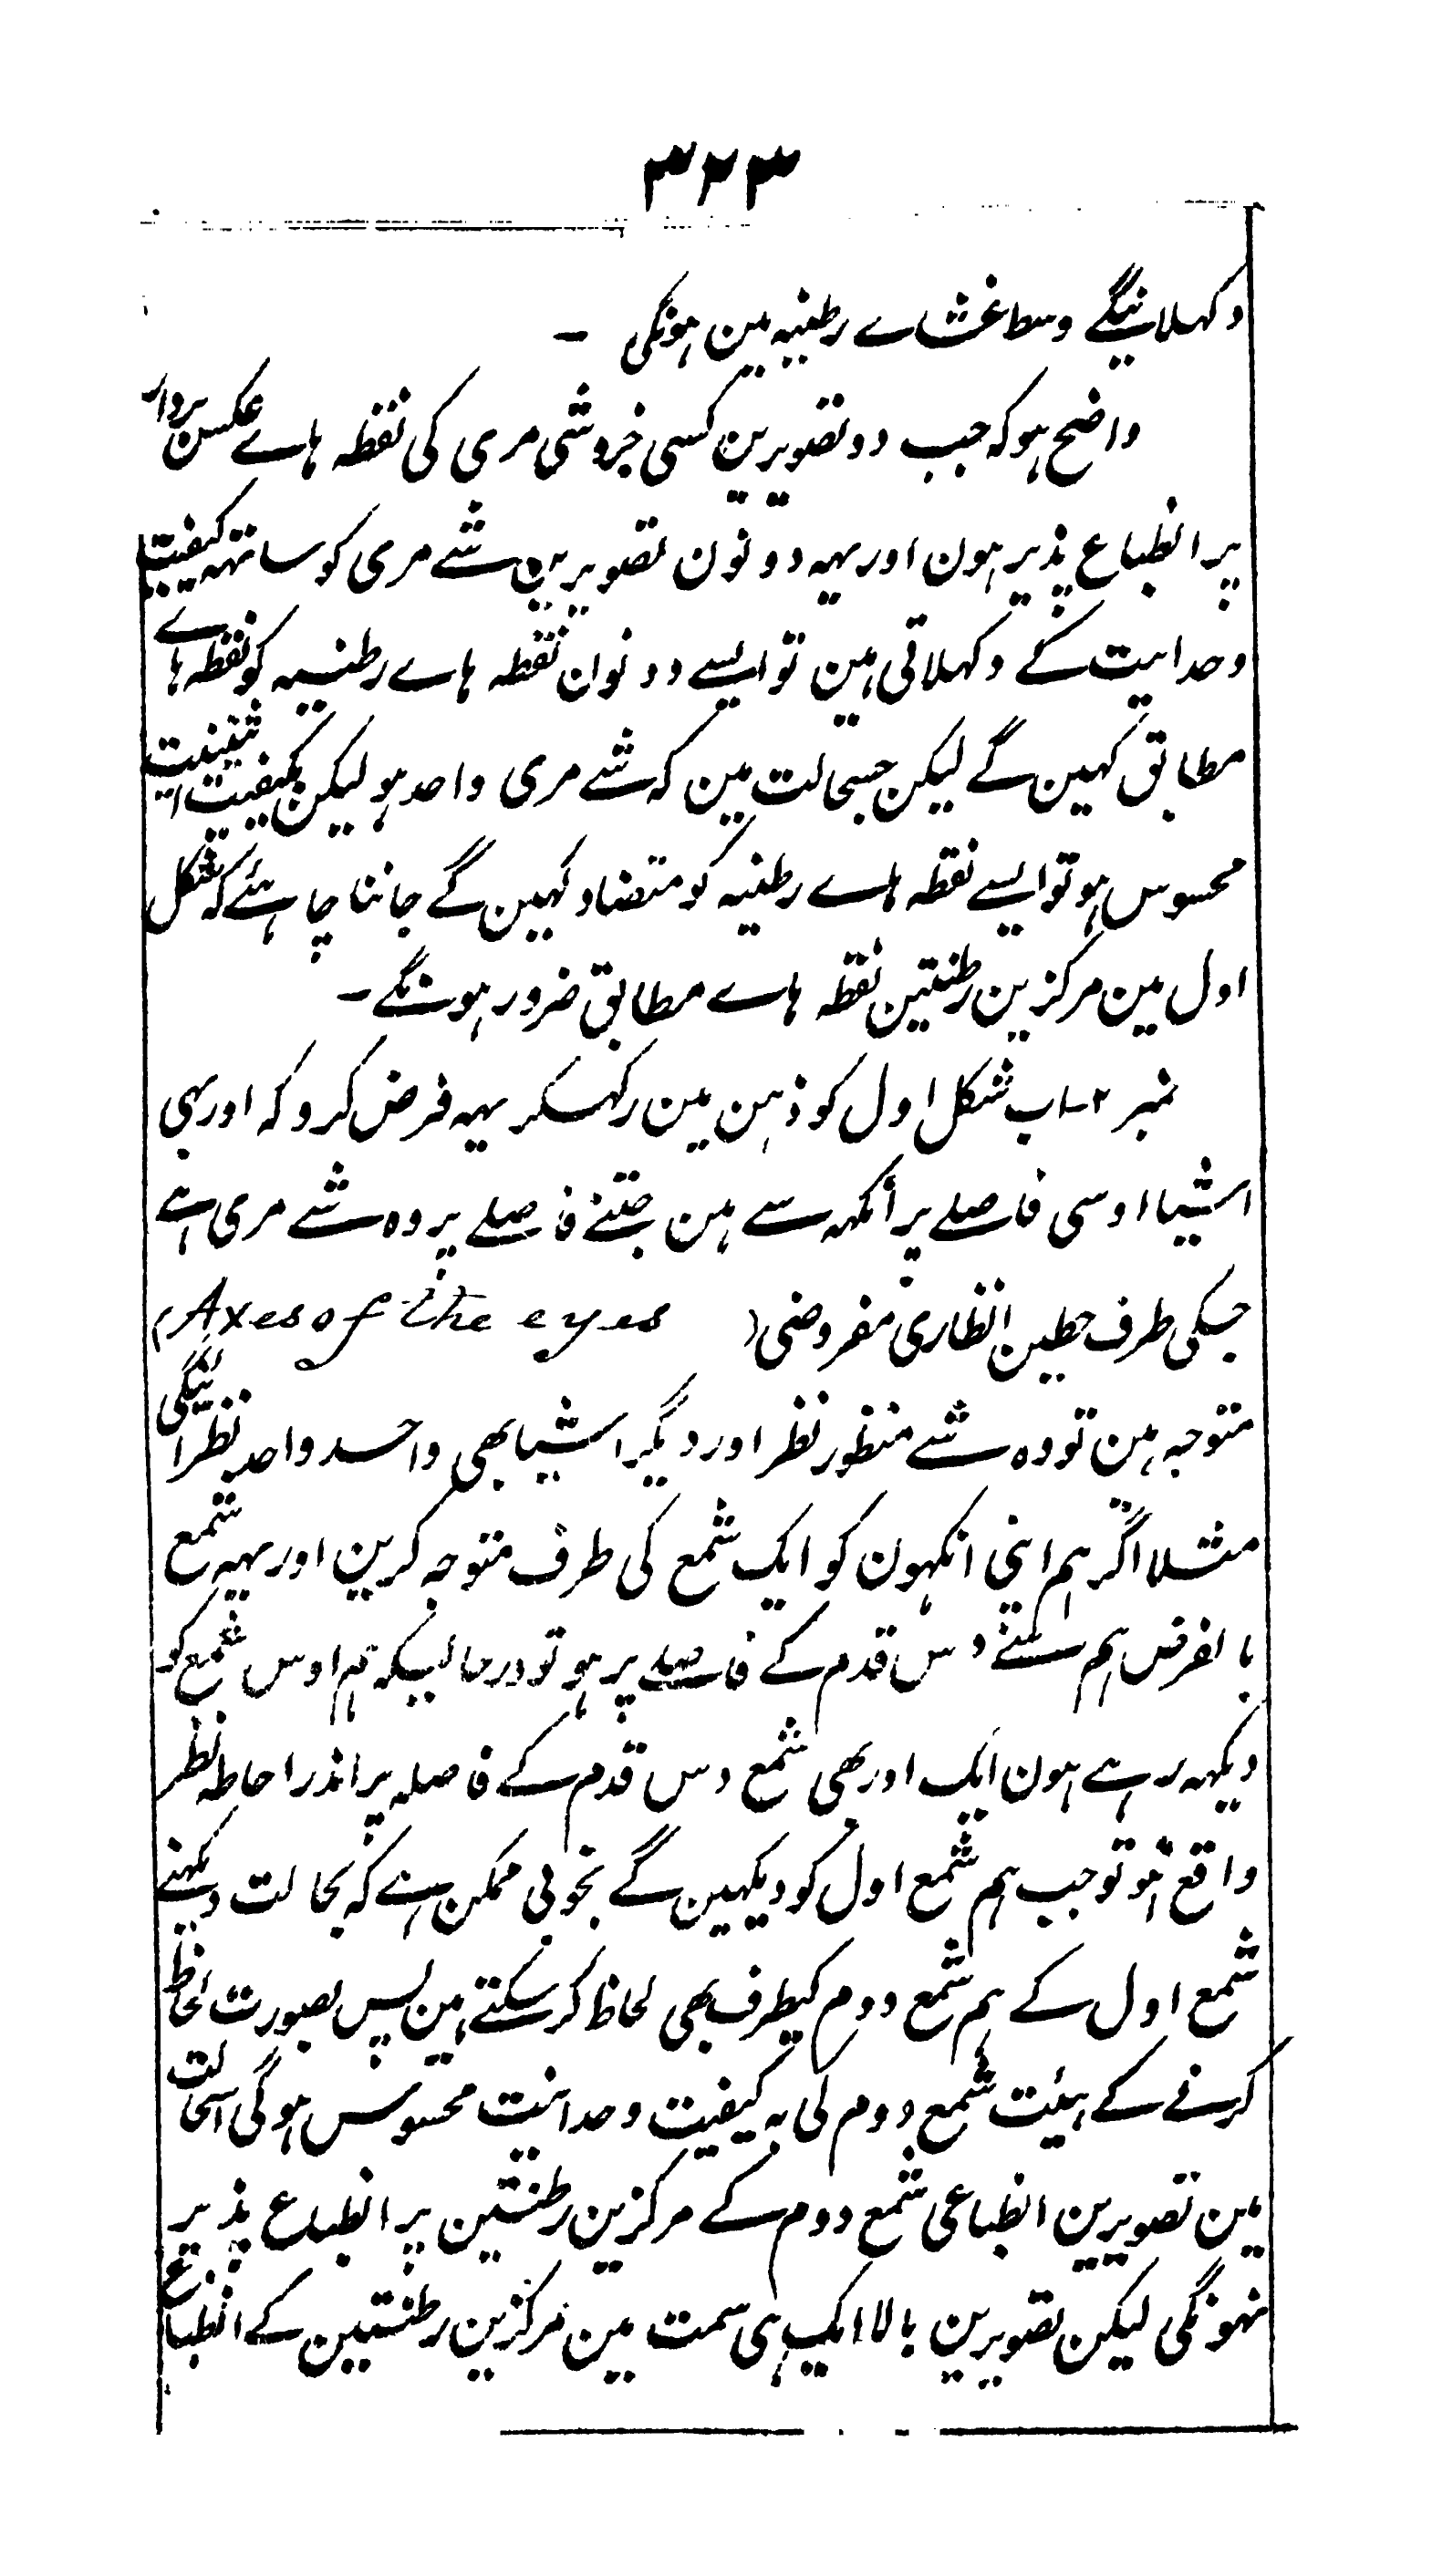 ۳۲۳
دکهلاینگے وسط غشاے رطنیہ مین ہونگی ـ
واضح ہو کہ جب دو تصویرین کسی جزوشی مری کی نقطہ ہاے عکس بردار
پر انطباع پذیر ہون اور یہہ دونون تصویرین شے مری کو ساتهہ کیفیت
وحدانیت کے دکهلاتی ہین تو ایسے دونوان نقطہ ہاے رطنیہ کو نقطہ ہاے
مطابق کہین گے لیکن جسحالت مین کہ شے مری واحد ہو لیکن بکیفیت اثنینیت
محسوس ہو تو ایسے نقطہ ہاے رطنیہ کو متضاد کہین گے جاننا چاہئے کہ شکل
اول مین مرکزین رطنتین نقطہ ہاے مطابق ضرور ہونگے ـ
نمبر ۲ ـ اب شکل اول کو ذہن مین رکهکر یہہ فرض کرو کہ اور بہی
اشیا اوسی فاصلے پر آنکهہ سے ہین جتنے فاصلے پر وہ شے مری ہے
جسکی طرف خطین انظاری مفروضی (Axes of the eyes)
متوجہ ہین تو وہ شے منظور نظر اور دیگر اشیا بھی واحد واحد نظر آئینگی
مثلا اگر ہم اپنی انکہون کو ایک شمع کی طرف متوجہ کرین اور یہہ شمع
بالفرض ہم سے دس قدم کے فاصلے پر ہو تو در حالیکہ ہم اوس شمع کو
دیکہہ رہے ہون ایک اور بھی شمع دس قدم کے فاصلہ پر اندر احاطہ نظر
واقع ہو تو جب ہم شمع اول کو دیکہین گے بخوبی ممکن ہے کہ بحالت دیکہنے
شمع اول کے ہم شمع دوم کیطرف بھی لحاظ کر سکتے ہین پس بصورت لحاظ
کرنے کے ہیئت شمع دوم کی بہ کیفیت وحدانیت محسوس ہوگی اسحالت
مین تصویرین انطباعی شمع دوم کے مرکزین رطنتین پر انطباع پذیر
نہونگی لیکن تصویرین بالا ایک ہی سمت مین مرکزین رطنتین کے انطباع